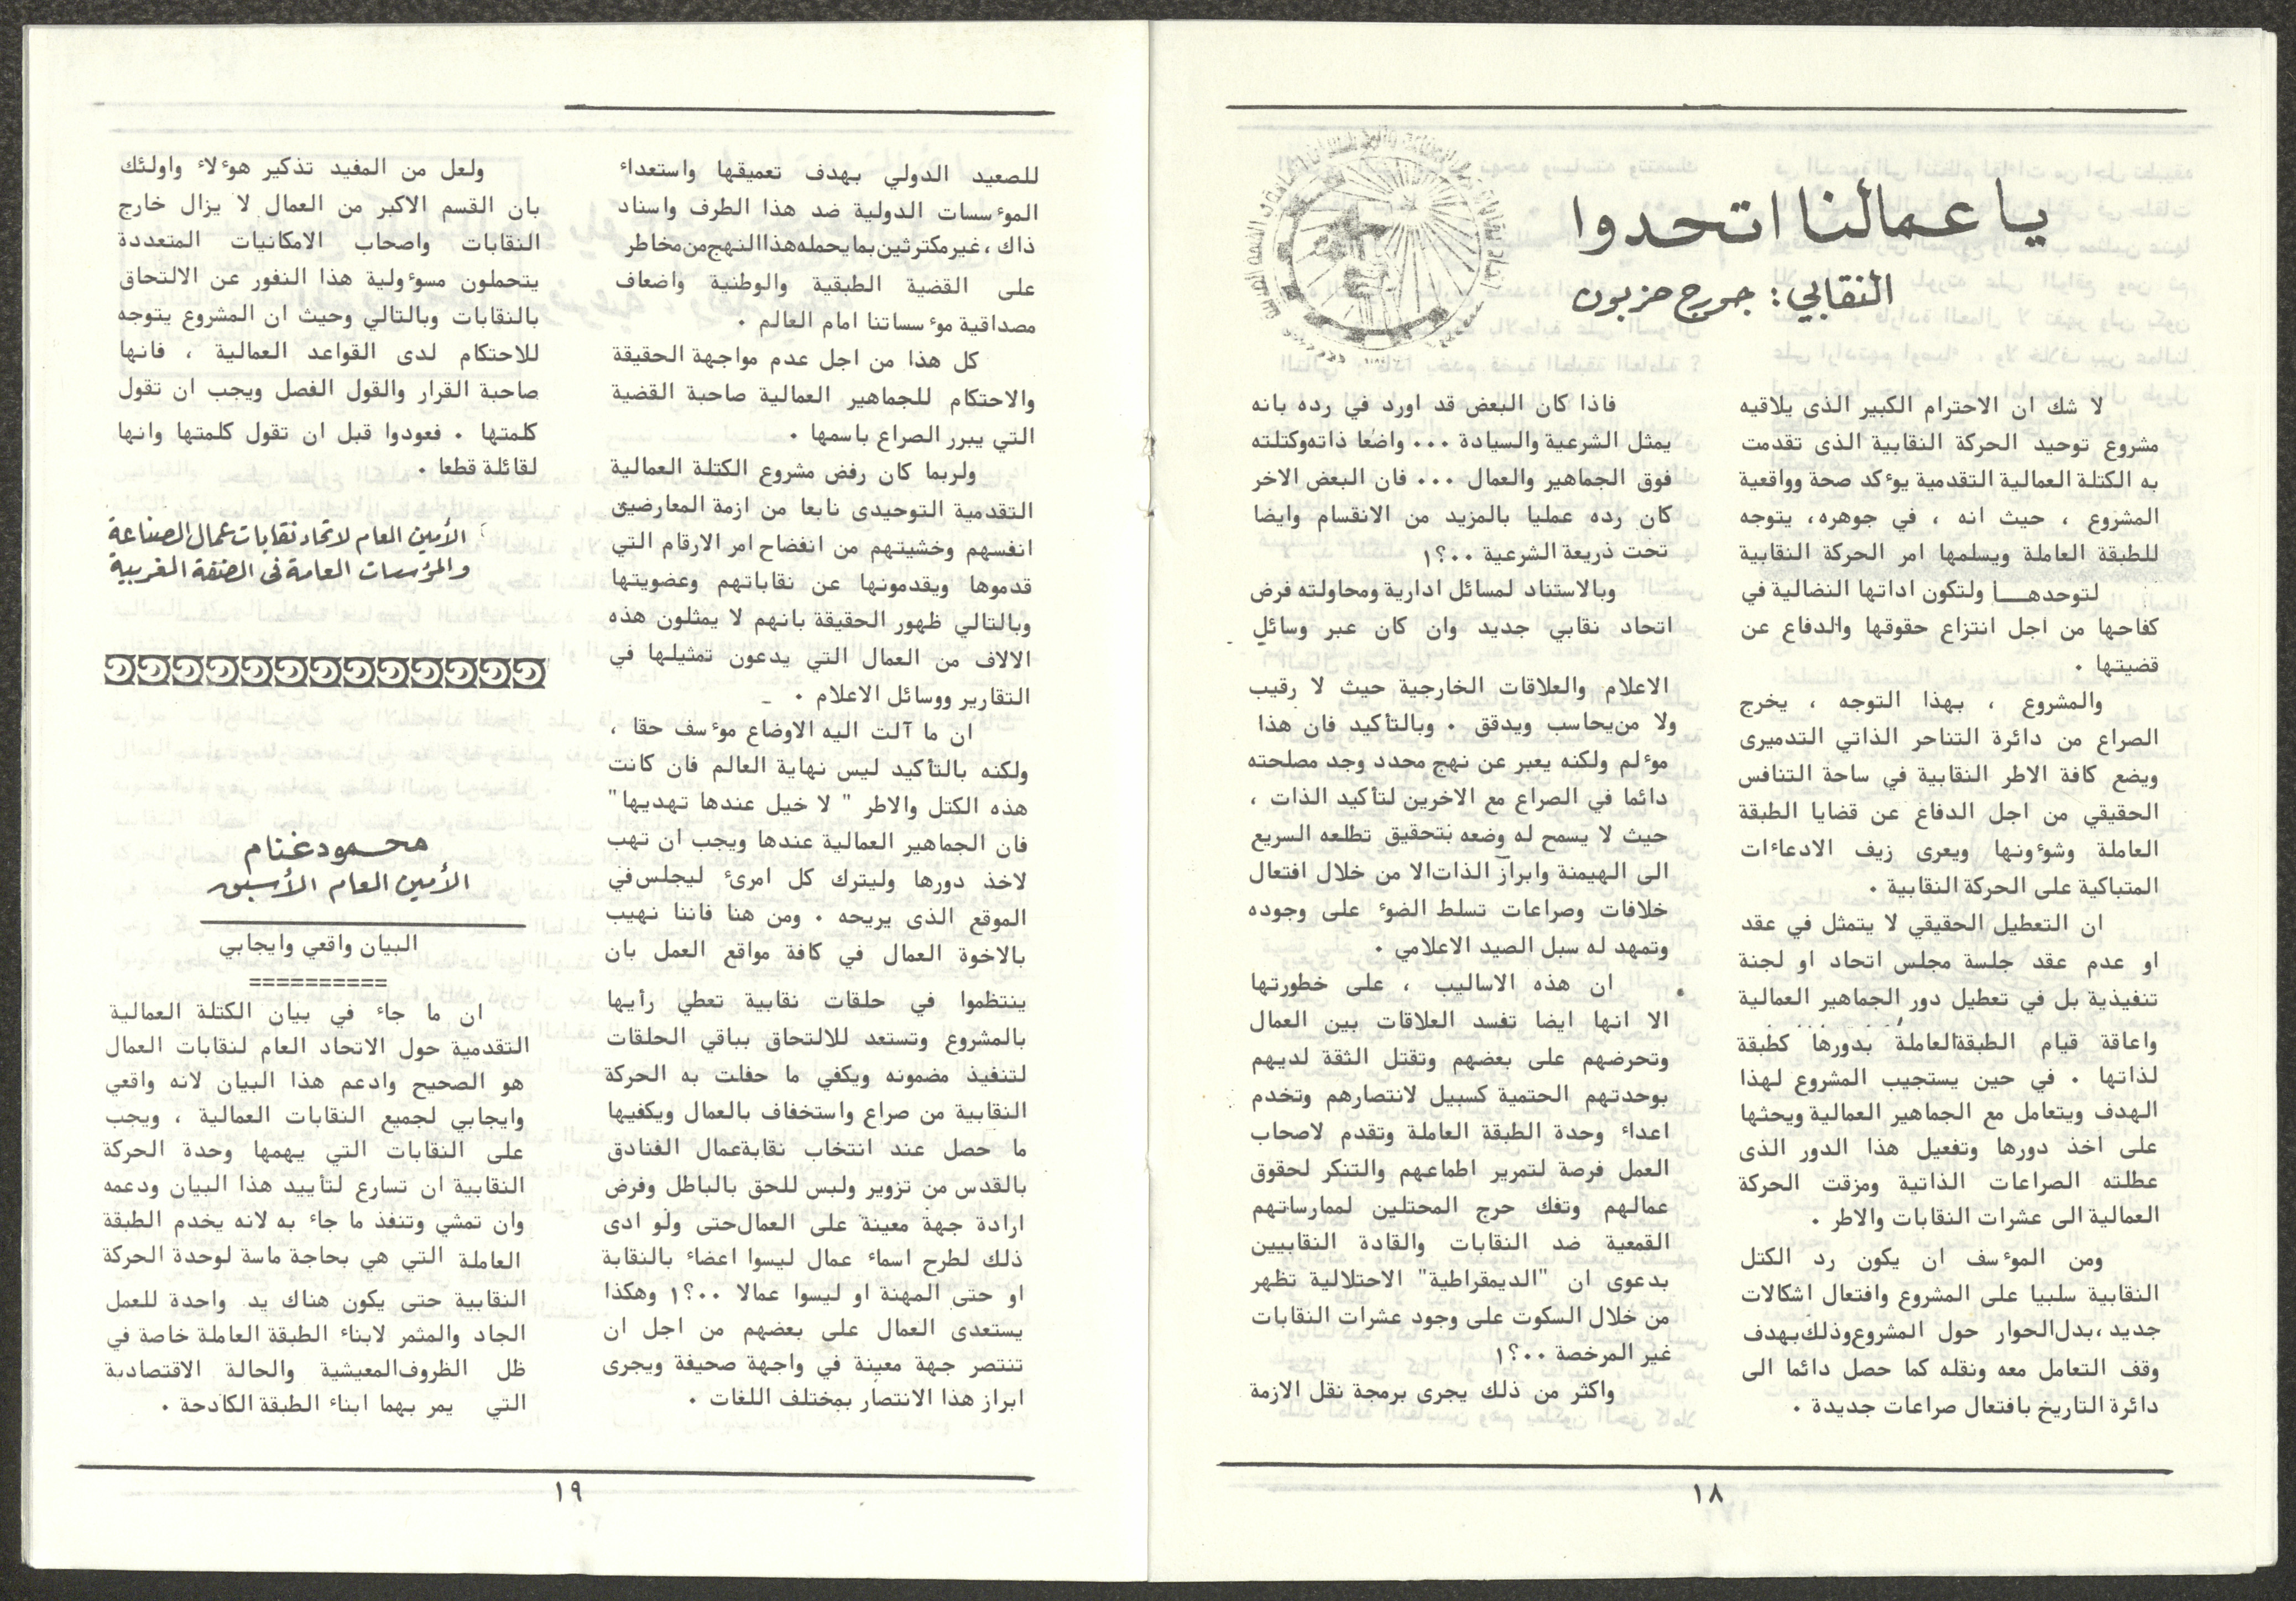 يا عمالنا اتحدوا
النقابي: جورج حزبون
لا شك ان الاحترام الكبير الذى يلاقيه
مشروع توحيد الحركة النقابية الذى تقدمت
به الكتلة العمالية التقدمية يوٴكد صحة وواقعية
المشروع ، حيث انه ، في جوهره، يتوجه
للطبقة العاملة ويسلمها امر الحركة النقابية
لتوحدهـــا ولتكون اداتها النضالية في
كفاحها من اجل انتزاع حقوقها والدفاع عن
قضيتها .
والمشروع ، بهذا التوجه ، يخرج
الصراع من دائرة التناحر الذاتي التدميرى
ويضع كافة الاطر النقابية في ساحة التنافس
الحقيقي من اجل الدفاع عن قضايا الطبقة
العاملة وشوٴونها ويعرى زيف الادعاءات
المتباكية على الحركة النقابية .
ان التعطيل الحقيقي لا يتمثل في عقد
او عدم عقد جلسة مجلس اتحاد او لجنة
تنفيذية بل في تعطيل دور الجماهير العمالية
واعاقة قيام الطبقة العاملة بدورها كطبقة
لذاتها . في حين يستجيب المشروع لهذا
الهدف ويتعامل مع الجماهير العمالية ويحثها
على اخذ دورها وتفعيل هذا الدور الذى
عطلته الصراعات الذاتية ومزقت الحركة
العمالية الى عشرات النقابات والاطر .
ومن الموٴسف ان يكون رد الكتل
النقابية سلبيا على المشروع وافتعال اشكالات
جديد ،بدل الحوار حول المشروع وذلك بهدف
وقف التعامل معه ونقله كما حصل دائما الى
دائرة التاريخ بافتعال صراعات جديدة .
فاذا كان البعض قد اورد في رده بانه
يمثل الشرعية والسيادة ... واضعا ذاته وكتلته
فوق الجماهير والعمال ... فان البعض الاخر
كان رده عمليا بالمزيد من الانقسام وايضا
تحت ذريعة الشرعية ..؟!
وبالاستناد لمسائل ادارية ومحاولته فرض
اتحاد نقابي جديد وان كان عبر وسائل
الاعلام والعلاقات الخارجية حيث لا رقيب
ولا من يحاسب ويدقق . وبالتأكيد فان هذا
موٴلم ولكنه يعبر عن نهج محدد وجد مصلحته
دائما في الصراع مع الاخرين لتأكيد الذات ،
حيث لا يسمح له وضعه بتحقيق تطلعه السريع
الى الهيمنة وابراز الذات الا من خلال افتعال
خلافات وصراعات تسلط الضوء على وجوده
وتمهد له سبل الصيد الاعلامي .
ان هذه الاساليب ، على خطورتها
الا انها ايضا تفسد العلاقات بين العمال
وتحرضهم على بعضهم وتقتل الثقة لديهم
بوحدتهم الحتمية كسبيل لانتصارهم وتخدم
اعداء وحدة الطبقة العاملة وتقدم لاصحاب
العمل فرصة لتمرير اطماعهم والتنكر لحقوق
عمالهم وتفك حرج المحتلين لممارساتهم
القمعية ضد النقابات والقادة النقابيين
بدعوى ان "الديمقراطية" الاحتلالية تظهر
من خلال السكوت على وجود عشرات النقابات
غير المرخصة ..؟!
واكثر من ذلك يجرى برمجة نقل الازمة
١٨
للصعيد الدولي بهدف تعميقها واستعداء
الموٴسسات الدولية ضد هذا الطرف واسناد
ذاك ،غير مكترثين بما يحمله هذا النهج من مخاطر
على القضية الطبقية والوطنية واضعاف
مصداقية موٴسساتنا امام العالم .
كل هذا من اجل عدم مواجهة الحقيقة
والاحتكام للجماهير العمالية صاحبة القضية
التي يبرر الصراع باسمها .
ولربما كان رفض مشروع الكتلة العمالية
التقدمية التوحيدى نابعا من ازمة المعارضين
انفسهم وخشيتهم من انفضاح امر الارقام التي
قدموها ويقدمونها عن نقاباتهم وعضويتها
وبالتالي ظهور الحقيقة بانهم لا يمثلون هذه
الالاف من العمال التي يدعون تمثيلها في
التقارير ووسائل الاعلام .
ان ما آلت اليه الاوضاع موٴسف حقا ،
ولكنه بالتأكيد ليس نهاية العالم فان كانت
هذه الكتل والاطر " لا خيل عندها تهديها"
فان الجماهير العمالية عندها ويجب ان تهب
لاخذ دورها وليترك كل امرىء ليجلس في
الموقع الذى يريحه . ومن هنا فاننا نهيب
بالاخوة العمال في كافة مواقع العمل بان
ينتظموا في حلقات نقابية تعطي رأيها
بالمشروع وتستعد للالتحاق بباقي الحلقات
لتنفيذ مضمونه ويكفي ما حفلت به الحركة
النقابية من صراع واستخفاف بالعمال ويكفيها
ما حصل عند انتخاب نقابة عمال الفنادق
بالقدس من تزوير ولبس للحق بالباطل وفرض
ارادة جهة معينة على العمال حتى ولو ادى
ذلك لطرح اسماء عمال ليسوا اعضاء بالنقابة
او حتى المهنة او ليسوا عمالا ..؟! وهكذا
يستعدى العمال على بعضهم من اجل ان
تنتصر جهة معينة في واجهة صحيفة ويجرى
ابراز هذا الانتصار بمختلف اللغات .
ولعل من المفيد تذكير هوٴلاء واولئك
بان القسم الاكبر من العمال لا يزال خارج
النقابات واصحاب الامكانيات المتعددة
يتحملون مسوٴولية هذا النفور عن الالتحاق
بالنقابات وبالتالي وحيث ان المشروع يتوجه
للاحتكام لدى القواعد العمالية ، فانها
صاحبة القرار والقول الفصل ويجب ان تقول
كلمتها . فعودوا قبل ان تقول كلمتها وانها
لقائلة قطعا .
الأمين العام لاتحاد نقابات عمال الصناعة
والمؤسسات العامة في الضفة الغربية
محمود غنام
الأمين العام الأسبق
البيان واقعي وايجابي
==========
ان ما جاء في بيان الكتلة العمالية
التقدمية حول الاتحاد العام لنقابات العمال
هو الصحيح وادعم هذا البيان لانه واقعي
وايجابي لجميع النقابات العمالية ، ويجب
على النقابات التي يهمها وحدة الحركة
النقابية ان تسارع لتأييد هذا البيان ودعمه
وان تمشي وتنفذ ما جاء به لانه يخدم الطبقة
العاملة التي هي بحاجة ماسة لوحدة الحركة
النقابية حتى يكون هناك يد واحدة للعمل
الجاد والمثمر لابناء الطبقة العاملة خاصة في
ظل الظروف المعيشية والحالة الاقتصادية
التي يمر بهما ابناء الطبقة الكادحة .
١٩